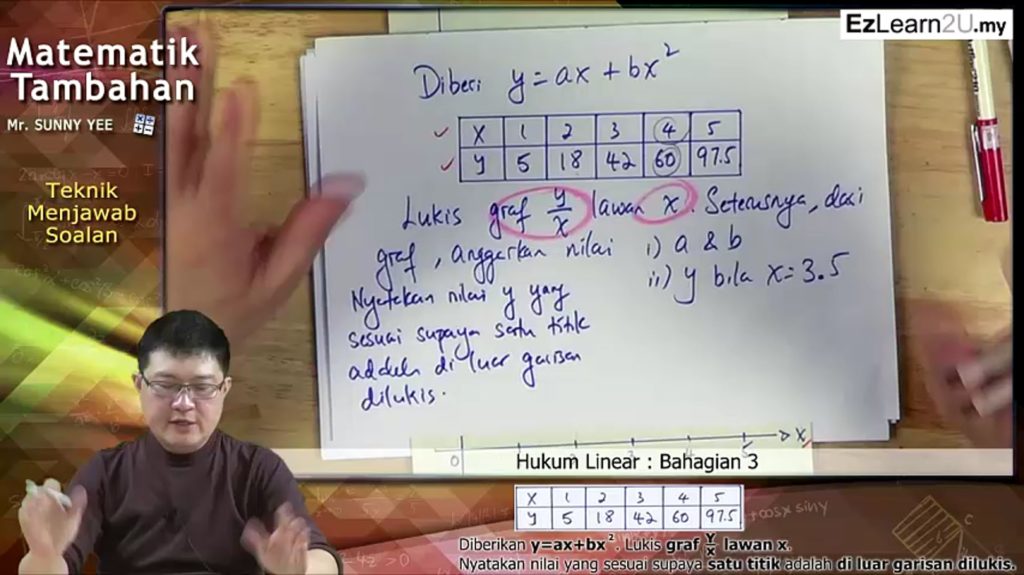 EzLearn2U.my
Matematik
Tambahan
Mr. SUNNY YEE
Teknik
Menjawab
Soalan
Diberi y = ax + bx²
x 1 2 3 4 5
y 5 18 42 60 97.5
Lukis graf y/x lawan x. Seterusnya, dari
graf, anggarkan nilai i) a & b
ii) y bila x = 3.5
Nyatakan nilai y yang
sesuai supaya satu titik
adalah di luar garisan
dilukis.
0 1 2 3 4 5 x
Hukum Linear : Bahagian 3
x 1 2 3 4 5
y 5 18 42 60 97.5
Diberikan y=ax+bx². Lukis graf y/x lawan x.
Nyatakan nilai yang sesuai supaya satu titik adalah di luar garisan dilukis.